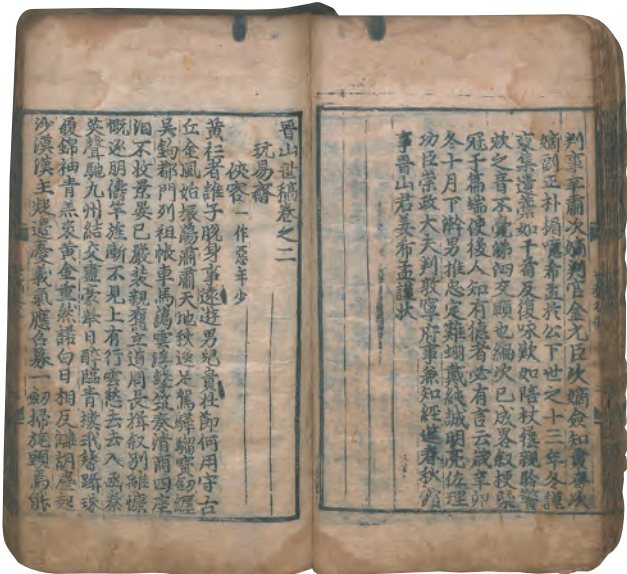 判事辛肅次嫡判官金允臣次嫡僉知黃次
嫡副正朴楣噫希孟於公下世之十三年冬謹
裒集遺藁如干首反復咏歎如陪杖屨親聆警
欬之音不覺涕泗交頤也編次已成畧叙梗槩
冠于篇端使後人知有德者必有言云歲辛卯
冬十月下澣男推忠定難翊戴純誠明亮佐理
功臣崇政大夫判敦寧府事兼知經筵春秋館
事晉山君姜希孟謹狀
晉山世稿卷之二
玩易齋
俠客一作惡年少
黃衫者誰子脫身事遠遊男兒貴壯節何用守古
丘金風始振蕩肅肅天地秋逶迤駕驊騮寶劒纒
吳鉤郡門列祖帳車馬藹雲浮筑奏清商四座
泪不收景晏已嚴裝親舊立道周長揖叙別離慷
慨送朋儔竿旌漸不見上有行雲愁去去入函秦
英聲馳九州結交豪日醉臨青樓玳瑁躡珠
履錦袖青羔裘黃金重然諾白日相反讎胡塵起
沙漠漢主凝遠憂義氣應召募一劒掃旄頭焉能